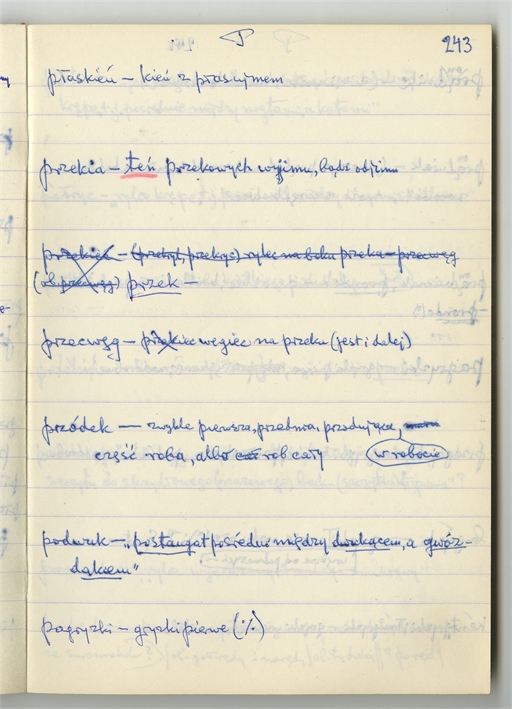 P
243
płaskień – kień z płaskimem
przekia – teń przekowych wyjimu, bądź odjimu
przekiec – (przekył, przekyć) rylec na boku przeka – przecwęg
(ob. przecwęg) przek –
przecwęg – przekiec węgiec na przeku (jest i dalej)
przódek — zwykle pierwsza, przednia, przodująca,
część roba, albo rob cały w robocie
podwuk – „postaugat pośredni między dwukącem, a gwóź-
dąkiem"
pagryzki – gryzki pierwe (·/·)